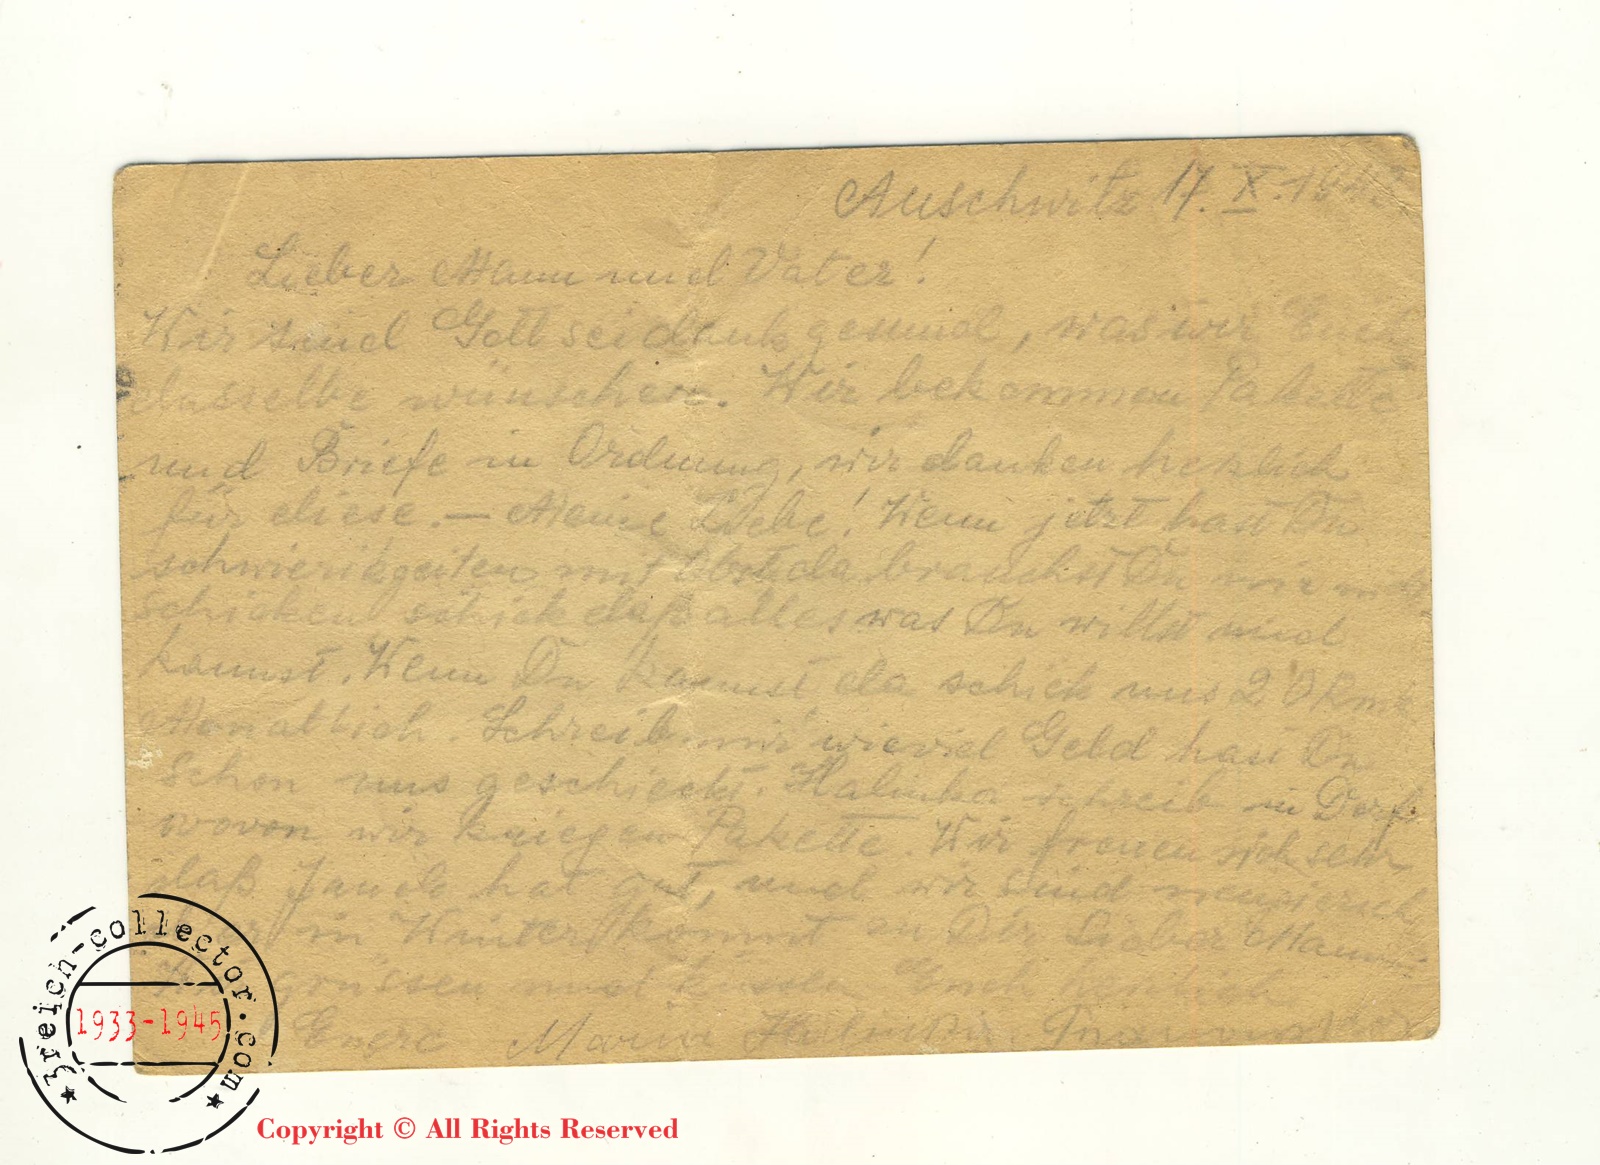 Auschwitz 17. X. 
Lieber Mann und Vater!
Wir sind Gott sei dank gesund, was wir Euch
dasselbe wünschen. Wir bekommen Pakette
und Briefe in Ordnung, wir danken herzlich
für diese. — Meine Liebe! Wenn jetzt hast Du
schwierikgeiten mit Obst da brauchst Du mir nicht
schicken schick daß alles was Du willst und
kannst. Wenn Du kannst da schick uns
Monatlich. Schreib mir wieviel Geld hast Du
schon uns geschieckt. Halinka schreib in Dorf
wovon wir kriegen Pakette. Wir freuen sich sehr,
daß hat gut, und wir sind
in Winter kommt Lieber Mann
grüssen und küssen Euch herzlich
Euere
3reich-collector.com
1933-1945
Copyright © All Rights Reserved